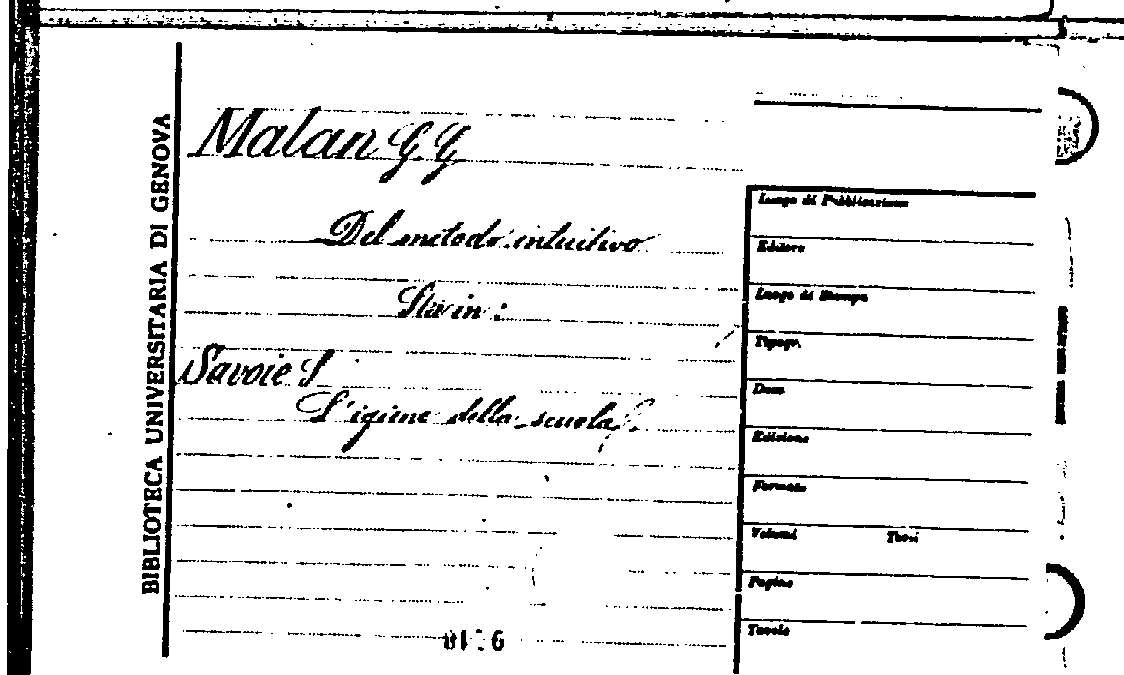 BIBLIOTECA UNIVERSITARIA DI GENOVA
Malan G. G.
Del metodo intuitivo
Sta in:
Savoie S
L'igiene della scuola
Luogo di Pubblicazione
Editore
Luogo di Stampa
Tipogr.
Data
Edizione
Formato
Volumi Tomi
Pagine
Tavole